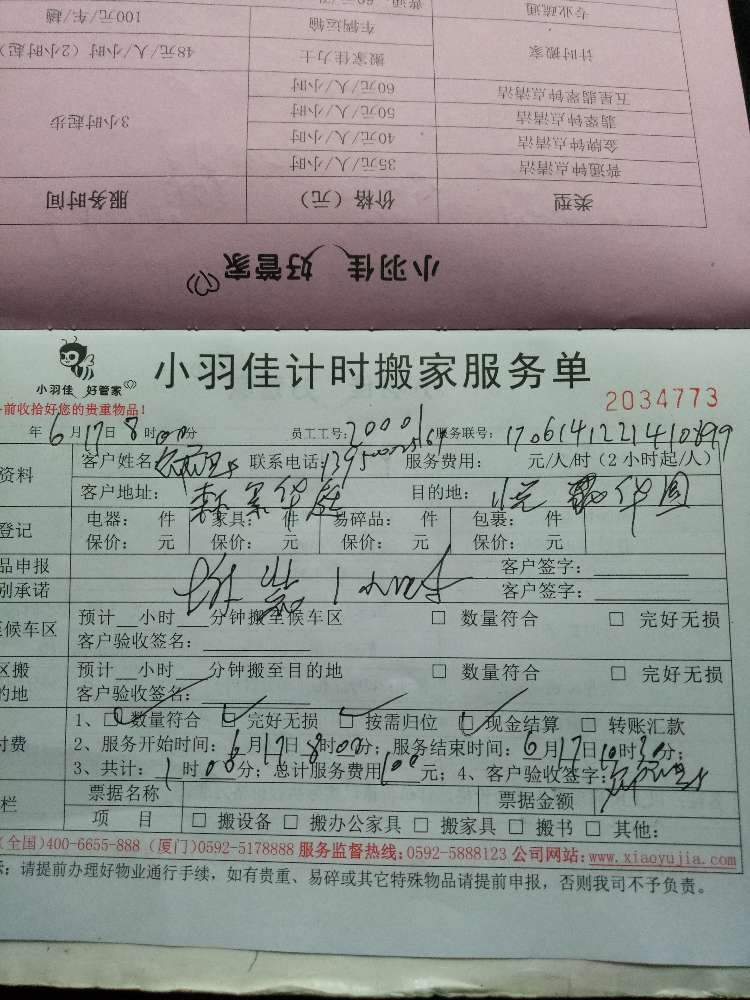 专业疏通
普通
计时搬家
车辆运输
100元/车/趟
搬家佳力士
48元/人/小时（2小时起）
五星翡翠钟点清洁
60元/人/小时
翡翠钟点清洁
50元/人/小时
金牌钟点清洁
40元/人/小时
普通钟点清洁
35元/人/小时
3小时起步
类型
价格（元）
服务时间
小羽佳 好管家
小羽佳 好管家
小羽佳计时搬家服务单
2034773
前收拾好您的贵重物品！
年6月17日8时00分 员工工号: 服务联号:
资料 客户姓名: 联系电话: 服务费用: 元/人/时（2小时起/人）
客户地址: 目的地:
登记 电器: 件 家具: 件 易碎品: 件 包裹: 件
保价: 元 保价: 元 保价: 元 保价: 元
品申报 客户签字:
别承诺 客户签字:
至候车区 预计__小时___分钟搬至候车区 □ 数量符合 □ 完好无损
客户验收签名:
区搬 预计__小时___分钟搬至目的地 □ 数量符合 □ 完好无损
的地 客户验收签名:
1、□数量符合 □ 完好无损 □ 按需归位 □ 现金结算 □ 转账汇款
付费 2、服务开始时间: 6月17日8时00分; 服务结束时间: 6月17日10时30分;
3、共计: 1时00分; 总计服务费用100元; 4、客户验收签字:
栏 票据名称 票据金额
项 目 □ 搬设备 □ 搬办公家具 □ 搬家具 □ 搬书 □ 其他:
(全国)400-6655-888 (厦门)0592-5178888 服务监督热线:0592-5888123 公司网站:www.xiaoyujia.com
示: 请提前办理好物业通行手续，如有贵重、易碎或其它特殊物品请提前申报，否则我司不予负责。